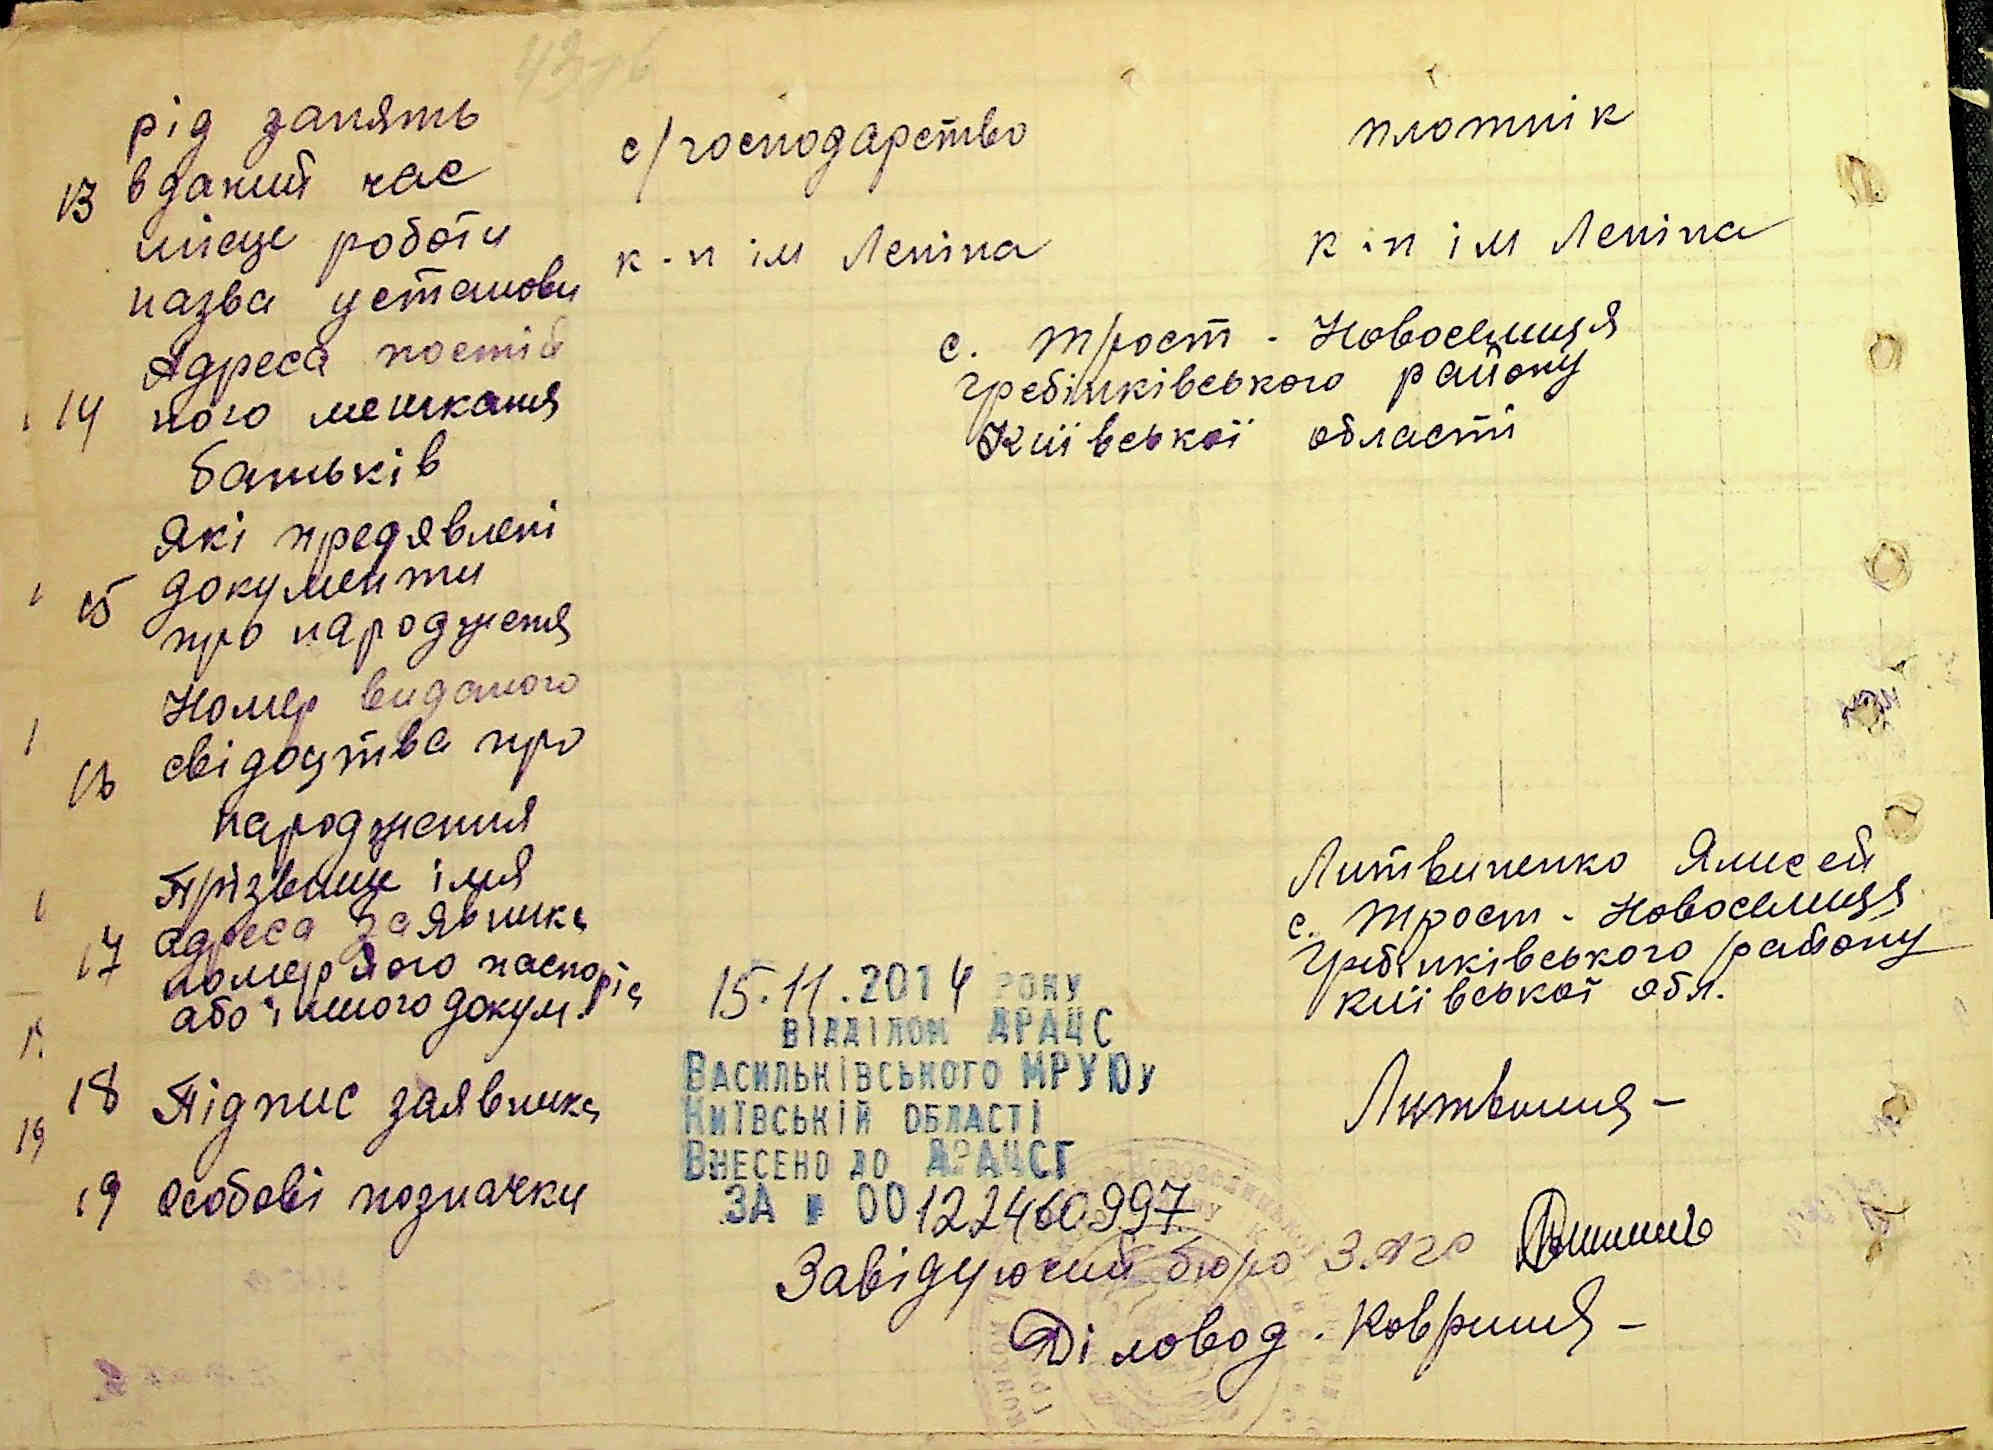 рід занять
в даний час
с/господарство
плотнік
13
місце роботи
назва установи
к-п ім Леніна
к-п ім Леніна
Адреса постій
14 ного мешканя
батьків
с. Трост - Новоселиця
Гребінківського району
Київської області
Які предявлені
15 документи
про народженя
Номер виданого
16 свідоцтва про
народження
Прізвище імя
адреса заявника
17 номер його паспорта
або іншого докум.
Литвиненко Ялисей
с. Трост - Новоселиця
Гребінківського району
Київської обл.
18 Підпис заявника
19 особові позначки
15.11.2014 РОКУ
ВІДДІЛОМ ДРАЦС
ВАСИЛЬКІВСЬКОГО МРУЮУ
КИЇВСЬКІЙ ОБЛАСТІ
ВНЕСЕНО ДО ДРАЦСГ
ЗА № 00122460997
Завідуючий бюро ЗАГС
Діловод. Ковриня -